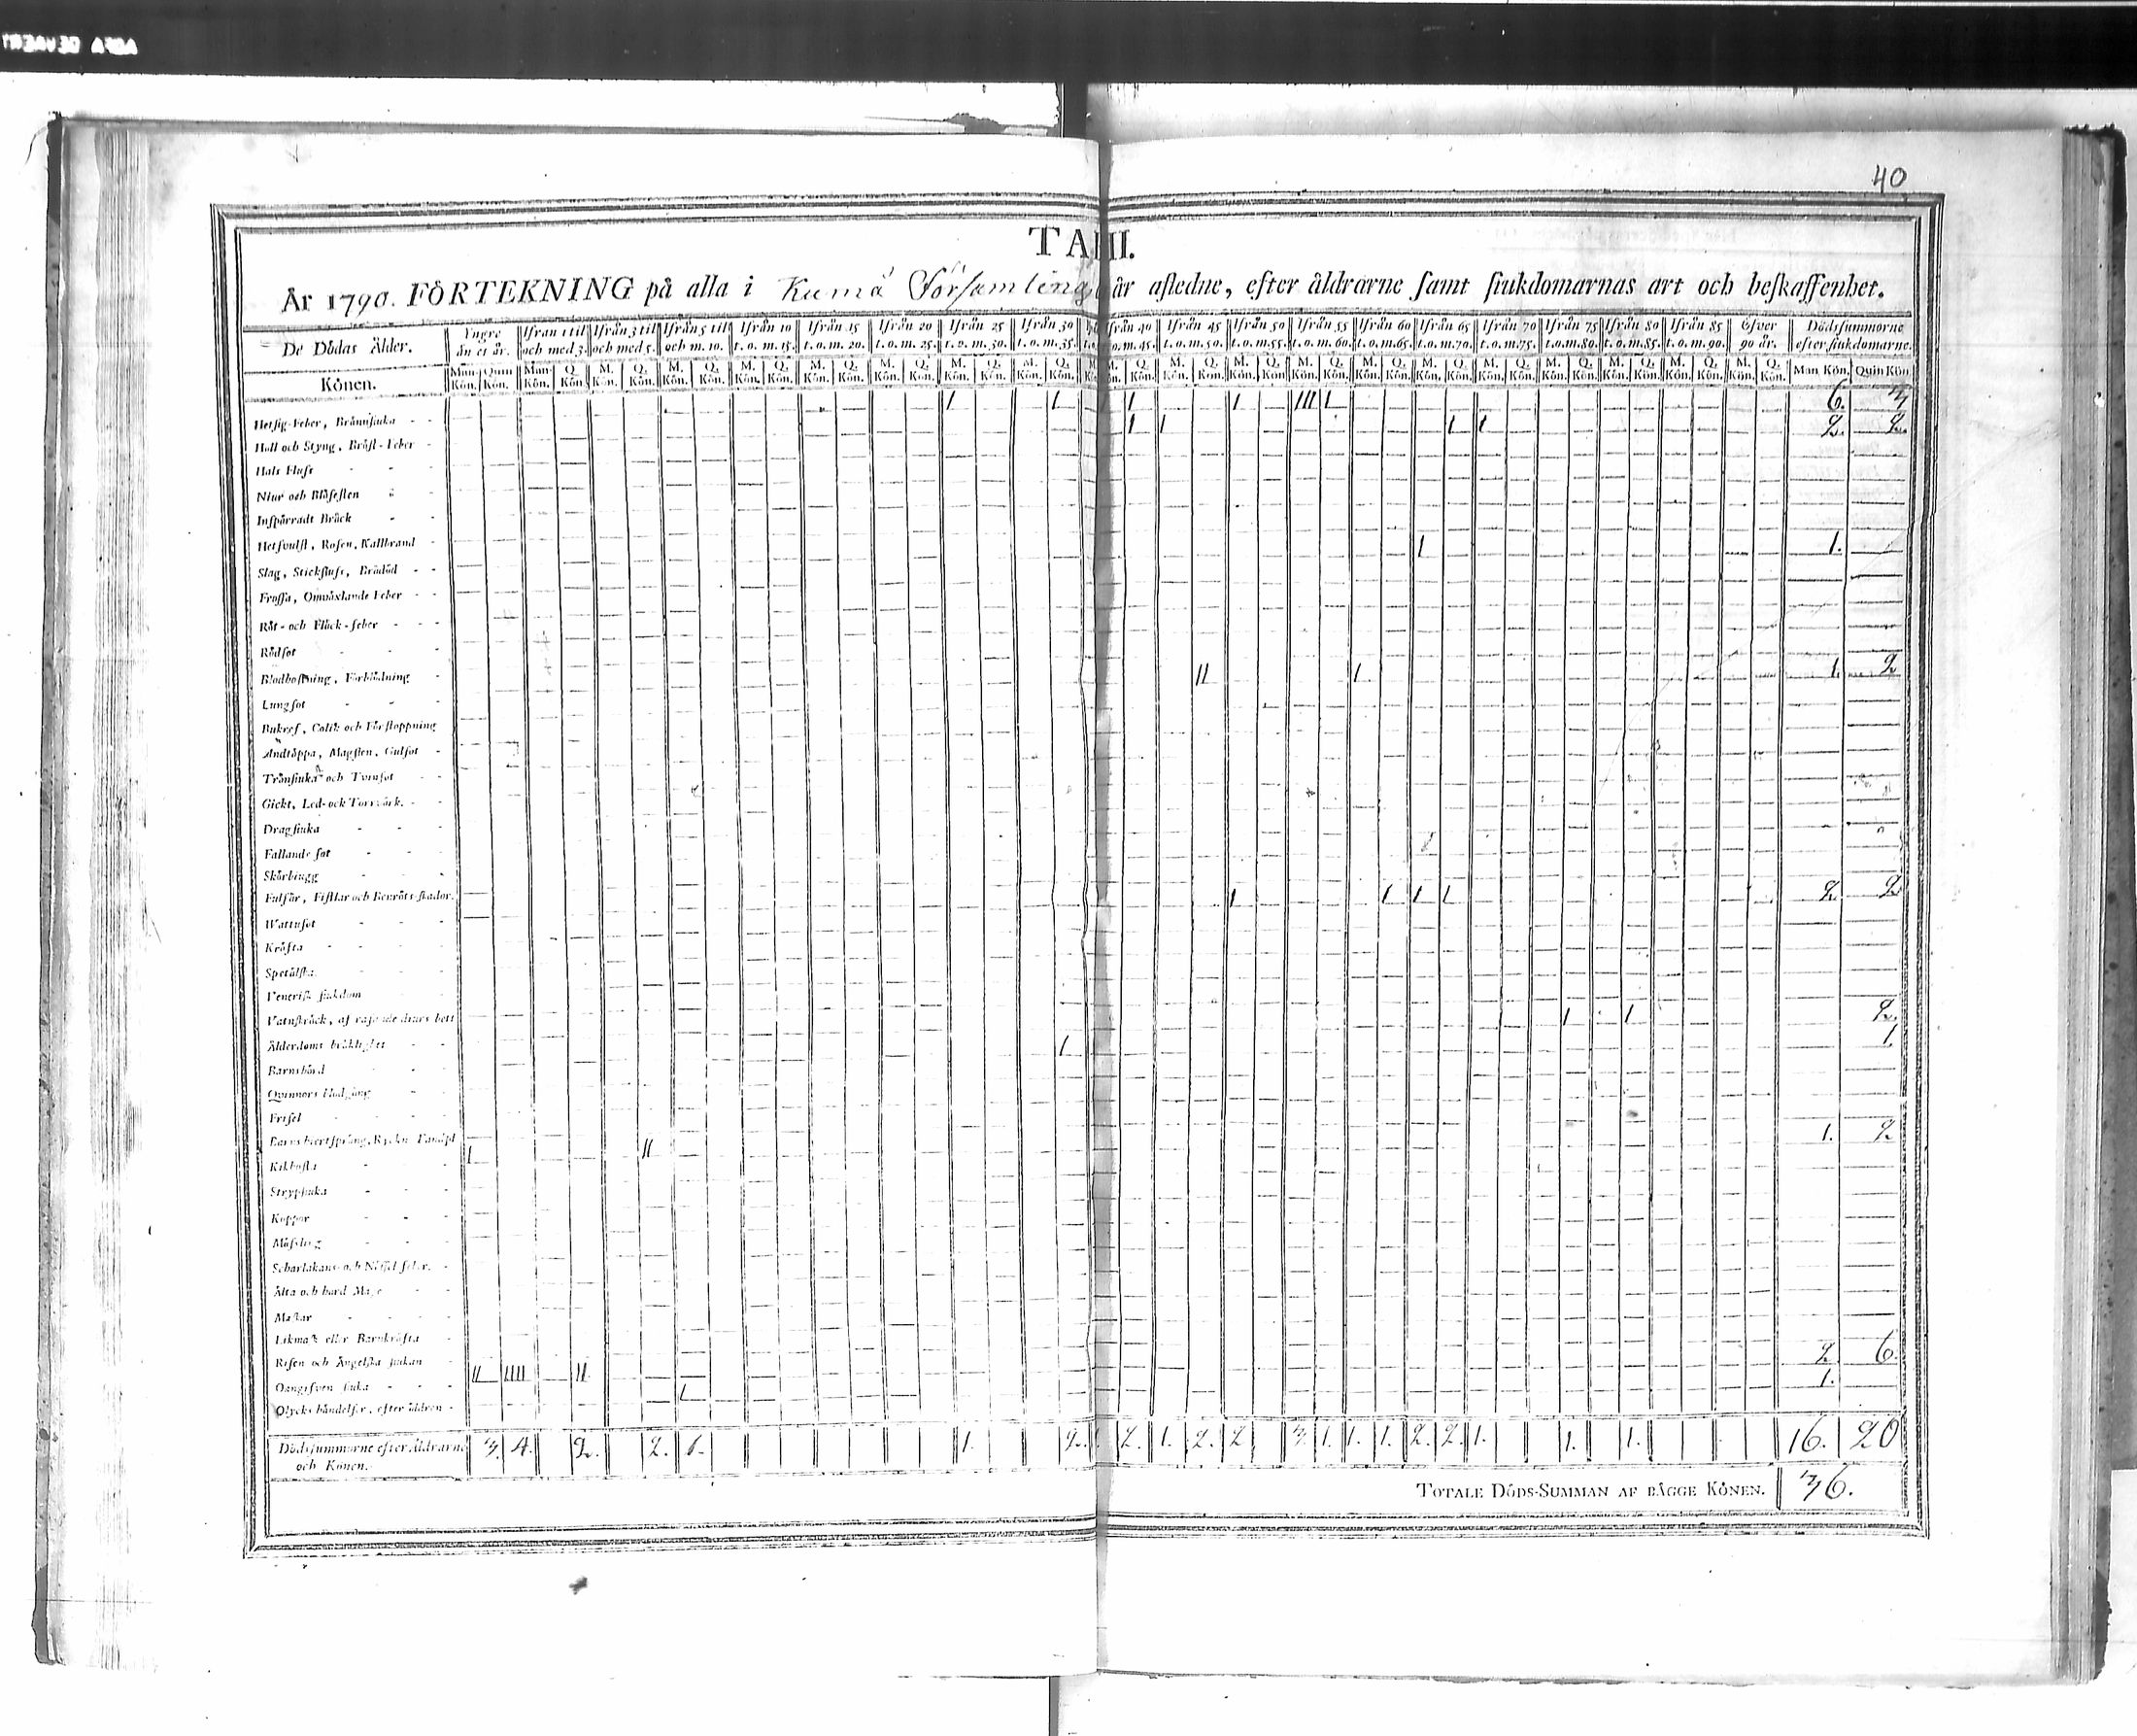 40
TA III.
År 1790. FÖRTEKNING på alla i Kumå Församling år afledne, efter åldrarne samt siukdomarnas art och beskaffenhet.
De Dödas Ålder. Yngre än et år. Ifrån 1 til och med 3. Ifrån 3 til och med 5. Ifrån 5 til och m. 10. Ifrån 10 t. o. m. 15. Ifrån 15 t. o. m. 20. Ifrån 20 t. o. m. 25. Ifrån 25 t. o. m. 30. Ifrån 30 t. o. m. 35. från 40 o. m. 45. Ifrån 45 t. o. m. 50. Ifrån 50 t. o. m. 55. Ifrån 55 t. o. m. 60. Ifrån 60 t. o. m. 65. Ifrån 65 t. o. m. 70. Ifrån 70 t. o. m. 75. Ifrån 75 t. o. m. 80. Ifrån 80 t. o. m. 85. Ifrån 85 t. o. m. 90. Öfver 90 år. Dödssummorne efter siukdomarne.
Könen. Man Kön. Quin Kön. Man Kön. Q. Kön. M. Kön. Q. Kön. M. Kön. Q. Kön. M. Kön. Q. Kön. M. Kön. Q. Kön. M. Kön. Q. Kön. M. Kön. Q. Kön. M. Kön. Q. Kön. M. Kön. Q. Kön. M. Kön. Q. Kön. M. Kön. Q. Kön. M. Kön. Q. Kön. M. Kön. Q. Kön. M. Kön. Q. Kön. M. Kön. Q. Kön. M. Kön. Q. Kön. M. Kön. Q. Kön. M. Kön. Q. Kön. M. Kön. Q. Kön. Man Kön. Quin Kön.
Hetsig-Feber, Brännsiuka 1 1 1 1 III 1 6. 3
Håll och Styng, Bröst-Feber 1 1 1 1 2. 2.
Hals Fluss
Niur och Blåsesten
Inspärradt Bråck
Hetsvulst, Rosen, Kallbrand 1 1.
Slag, Stickfluss, Brådöd
Frossa, Omväxlande Feber
Röt- och Fläck-feber
Rödsot
Blodhostning, Förblödning II 1 1. 2
Lungsot
Bukref, Colik och Förstoppning
Andtäppa, Magsten, Gulsot
Trånsiuka och Tvinsot
Gickt, Led- ock Torrvärk.
Dragsiuka
Fallande sot
Skörbiugg
Fulsår, Fistlar och Benröts-skador. 1 1 1 1 2. 2
Wattusot
Kräfta
Spetälska
Venerisk siukdom
Vatuskräck, af rasande diurs bett 1 1 2.
Ålderdoms bräklighet 1 1
Barnsbörd
Quinnors blodgång
Frisel
1. 2
Kikhosta 1 II
Strypsiuka
Koppor
Mässling
Scharlakans- och Nässel feber.
Älta och hård Mage
Maskar
Likmask eller Barnkräfta
Risen och Ängelska siukan 2 6.
Oangifven siuka II IIII II 1.
Olycks händelser, efter åldren 1
Dödssummorne efter Åldrarne och Könen. 3. 4. 2. 2. 1. 1. 2. 2. 1. 2. 2 3. 1. 1. 1. 2. 2. 1. 1. 1. 16. 20
TOTALE DÖDS-SUMMAN AF BÅGGE KÖNEN. 36.